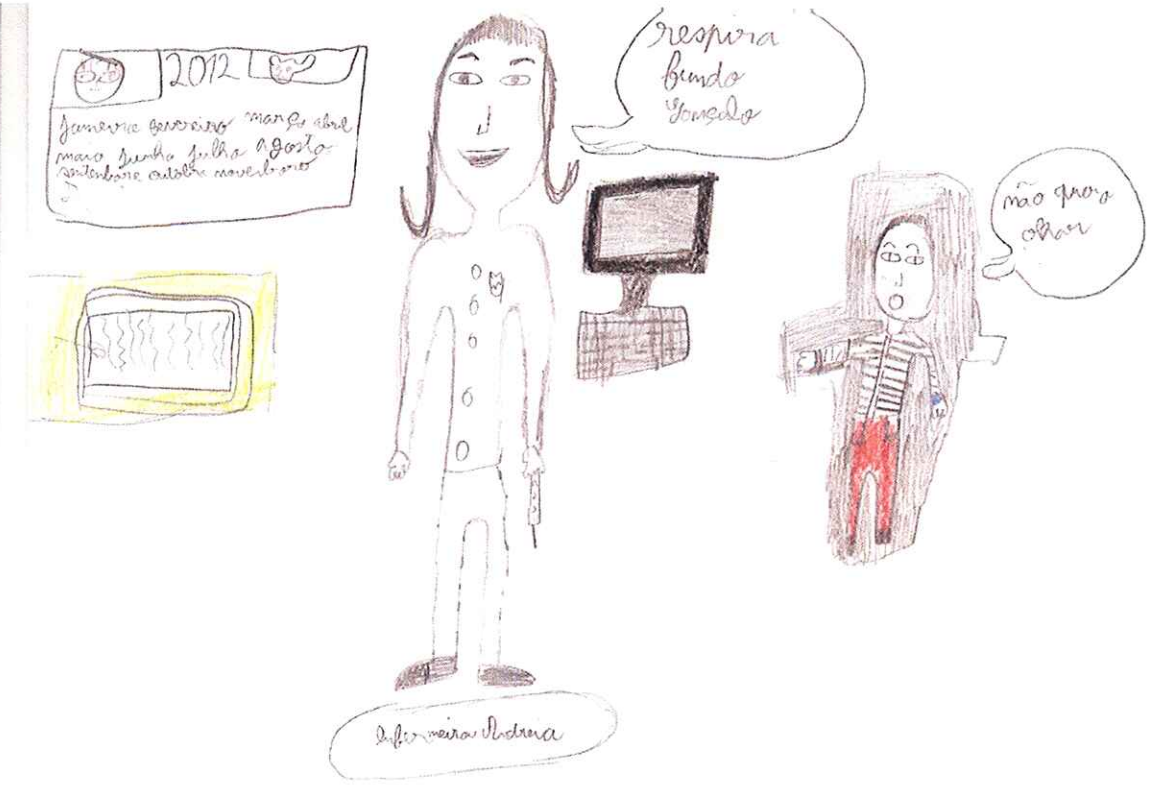 2012
Janeure fevereiro março abril
maio Junho Julho Agosto
sentenbare outobre noverboro
respira
fundo
Gonçalo
não quero
olhar
Infermeira Andreia